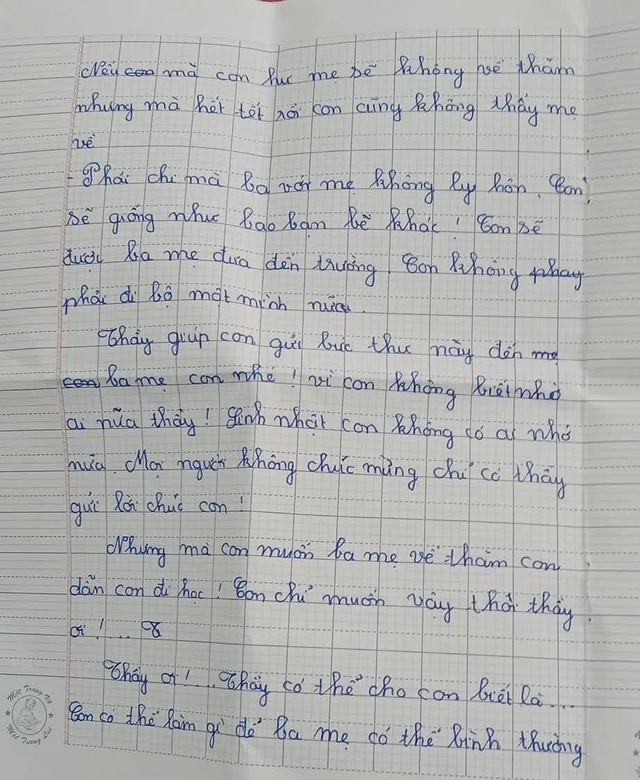 Nếu con mà con hư mẹ sẽ không về thăm
nhưng mà hết tết rồi con cũng không thấy mẹ
về
- Phải chi mà ba với mẹ không ly hôn. Con
sẽ giống như bao bạn bè khác! Con sẽ
được ba mẹ đưa đến trường. Con không phay
phải đi bộ một mình nữa.
Thầy giúp con gửi bức thư này đến mẹ
con ba mẹ con nhé! vì con không biết nhờ
ai nữa thầy! Sinh nhật con không có ai nhớ
nữa. Mọi người không chúc mừng chỉ có thầy
gửi lời chúc con!
Nhưng mà con muốn ba mẹ về thăm con
dẫn con đi học! Con chỉ muốn vậy thôi thầy
ơi!....
Thầy ơi!... Thầy có thể cho con biết là...
Con có thể làm gì để ba mẹ có thể bình thường